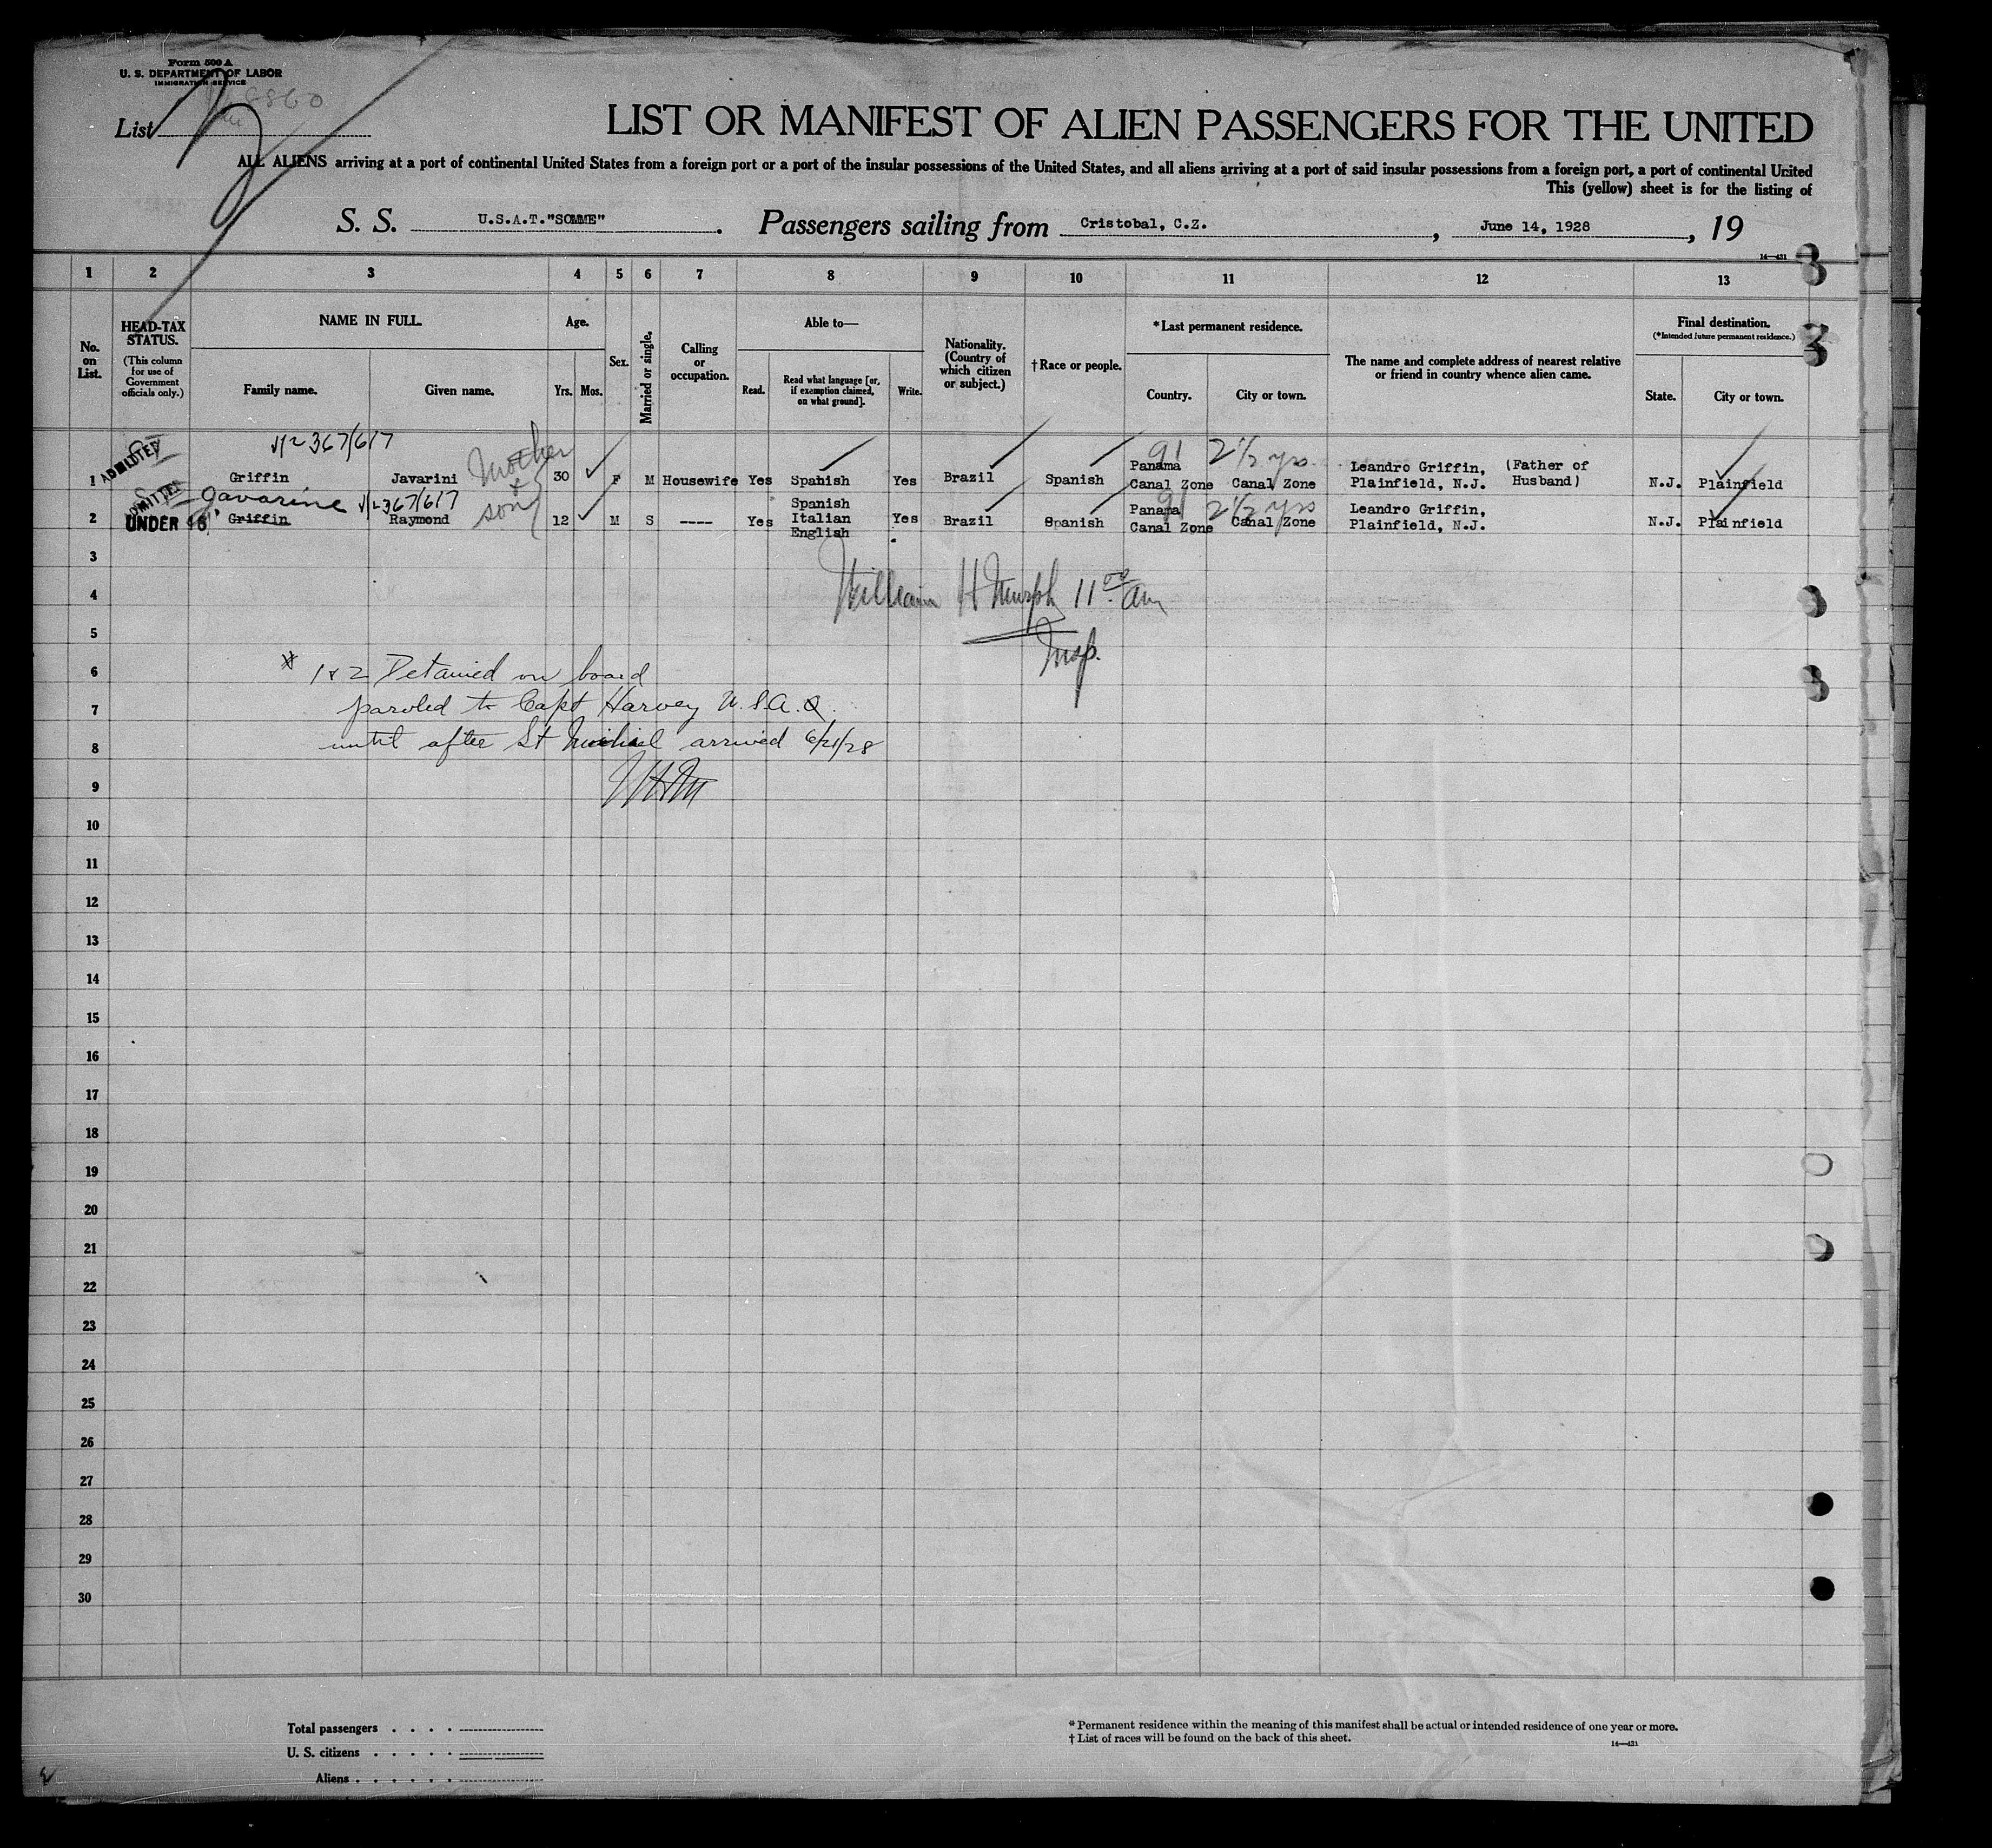 Form 500 A
U. S. DEPARTMENT OF LABOR
IMMIGRATION SERVICE
List
LIST OR MANIFEST OF ALIEN PASSENGERS FOR THE UNITED
ALL ALIENS arriving at a port of continental United States from a foreign port or a port of the insular possessions of the United States, and all aliens arriving at a port of said insular possessions from a foreign port, a port of continental United
This (yellow) sheet is for the listing of
S. S. U.S.A.T."SOMME". Passengers sailing from Cristobal, C.Z., June 14, 1928, 19
14—431
1 2 3 4 5 6 7 8 9 10 11 12 13
No. on List.
HEAD-TAX STATUS.
(This column for use of Government officials only.)
NAME IN FULL.
Family name. Given name.
Age.
Yrs. Mos.
Sex.
Married or single.
Calling or occupation.
Able to—
Read. Read what language [or, if exemption claimed, on what ground]. Write.
Nationality. (Country of which citizen or subject.)
†Race or people.
*Last permanent residence.
Country. City or town.
The name and complete address of nearest relative or friend in country whence alien came.
Final destination.
(*Intended future permanent residence.)
State. City or town.
367/617
1 ADMITTED Griffin Javarini Mother + son 30 F M Housewife Yes Spanish Yes Brazil Spanish Panama Canal Zone Canal Zone 91 2 1/2 yrs. Leandro Griffin, Plainfield, N.J. (Father of Husband) N.J. Plainfield
Gavarine 367/617
2 ADMITTED UNDER 16 Griffin Raymond 12 M S ---- Yes Spanish Italian English Yes Brazil Spanish Panama Canal Zone Canal Zone 91 2 1/2 yrs Leandro Griffin, Plainfield, N.J. N.J. Plainfield
3
4 William H Murph 11 00 am
5 Insp.
6 * 1 & 2 Detained on board
7 paroled to Capt Harvey U.S.A.Q.
8 until after St Mihiel arrived 6/21/28
9 WHM
10
11
12
13
14
15
16
17
18
19
20
21
22
23
24
25
26
27
28
29
30
Total passengers . . . .
U. S. citizens . . . . .
Aliens . . . . . .
* Permanent residence within the meaning of this manifest shall be actual or intended residence of one year or more.
† List of races will be found on the back of this sheet.
14—431